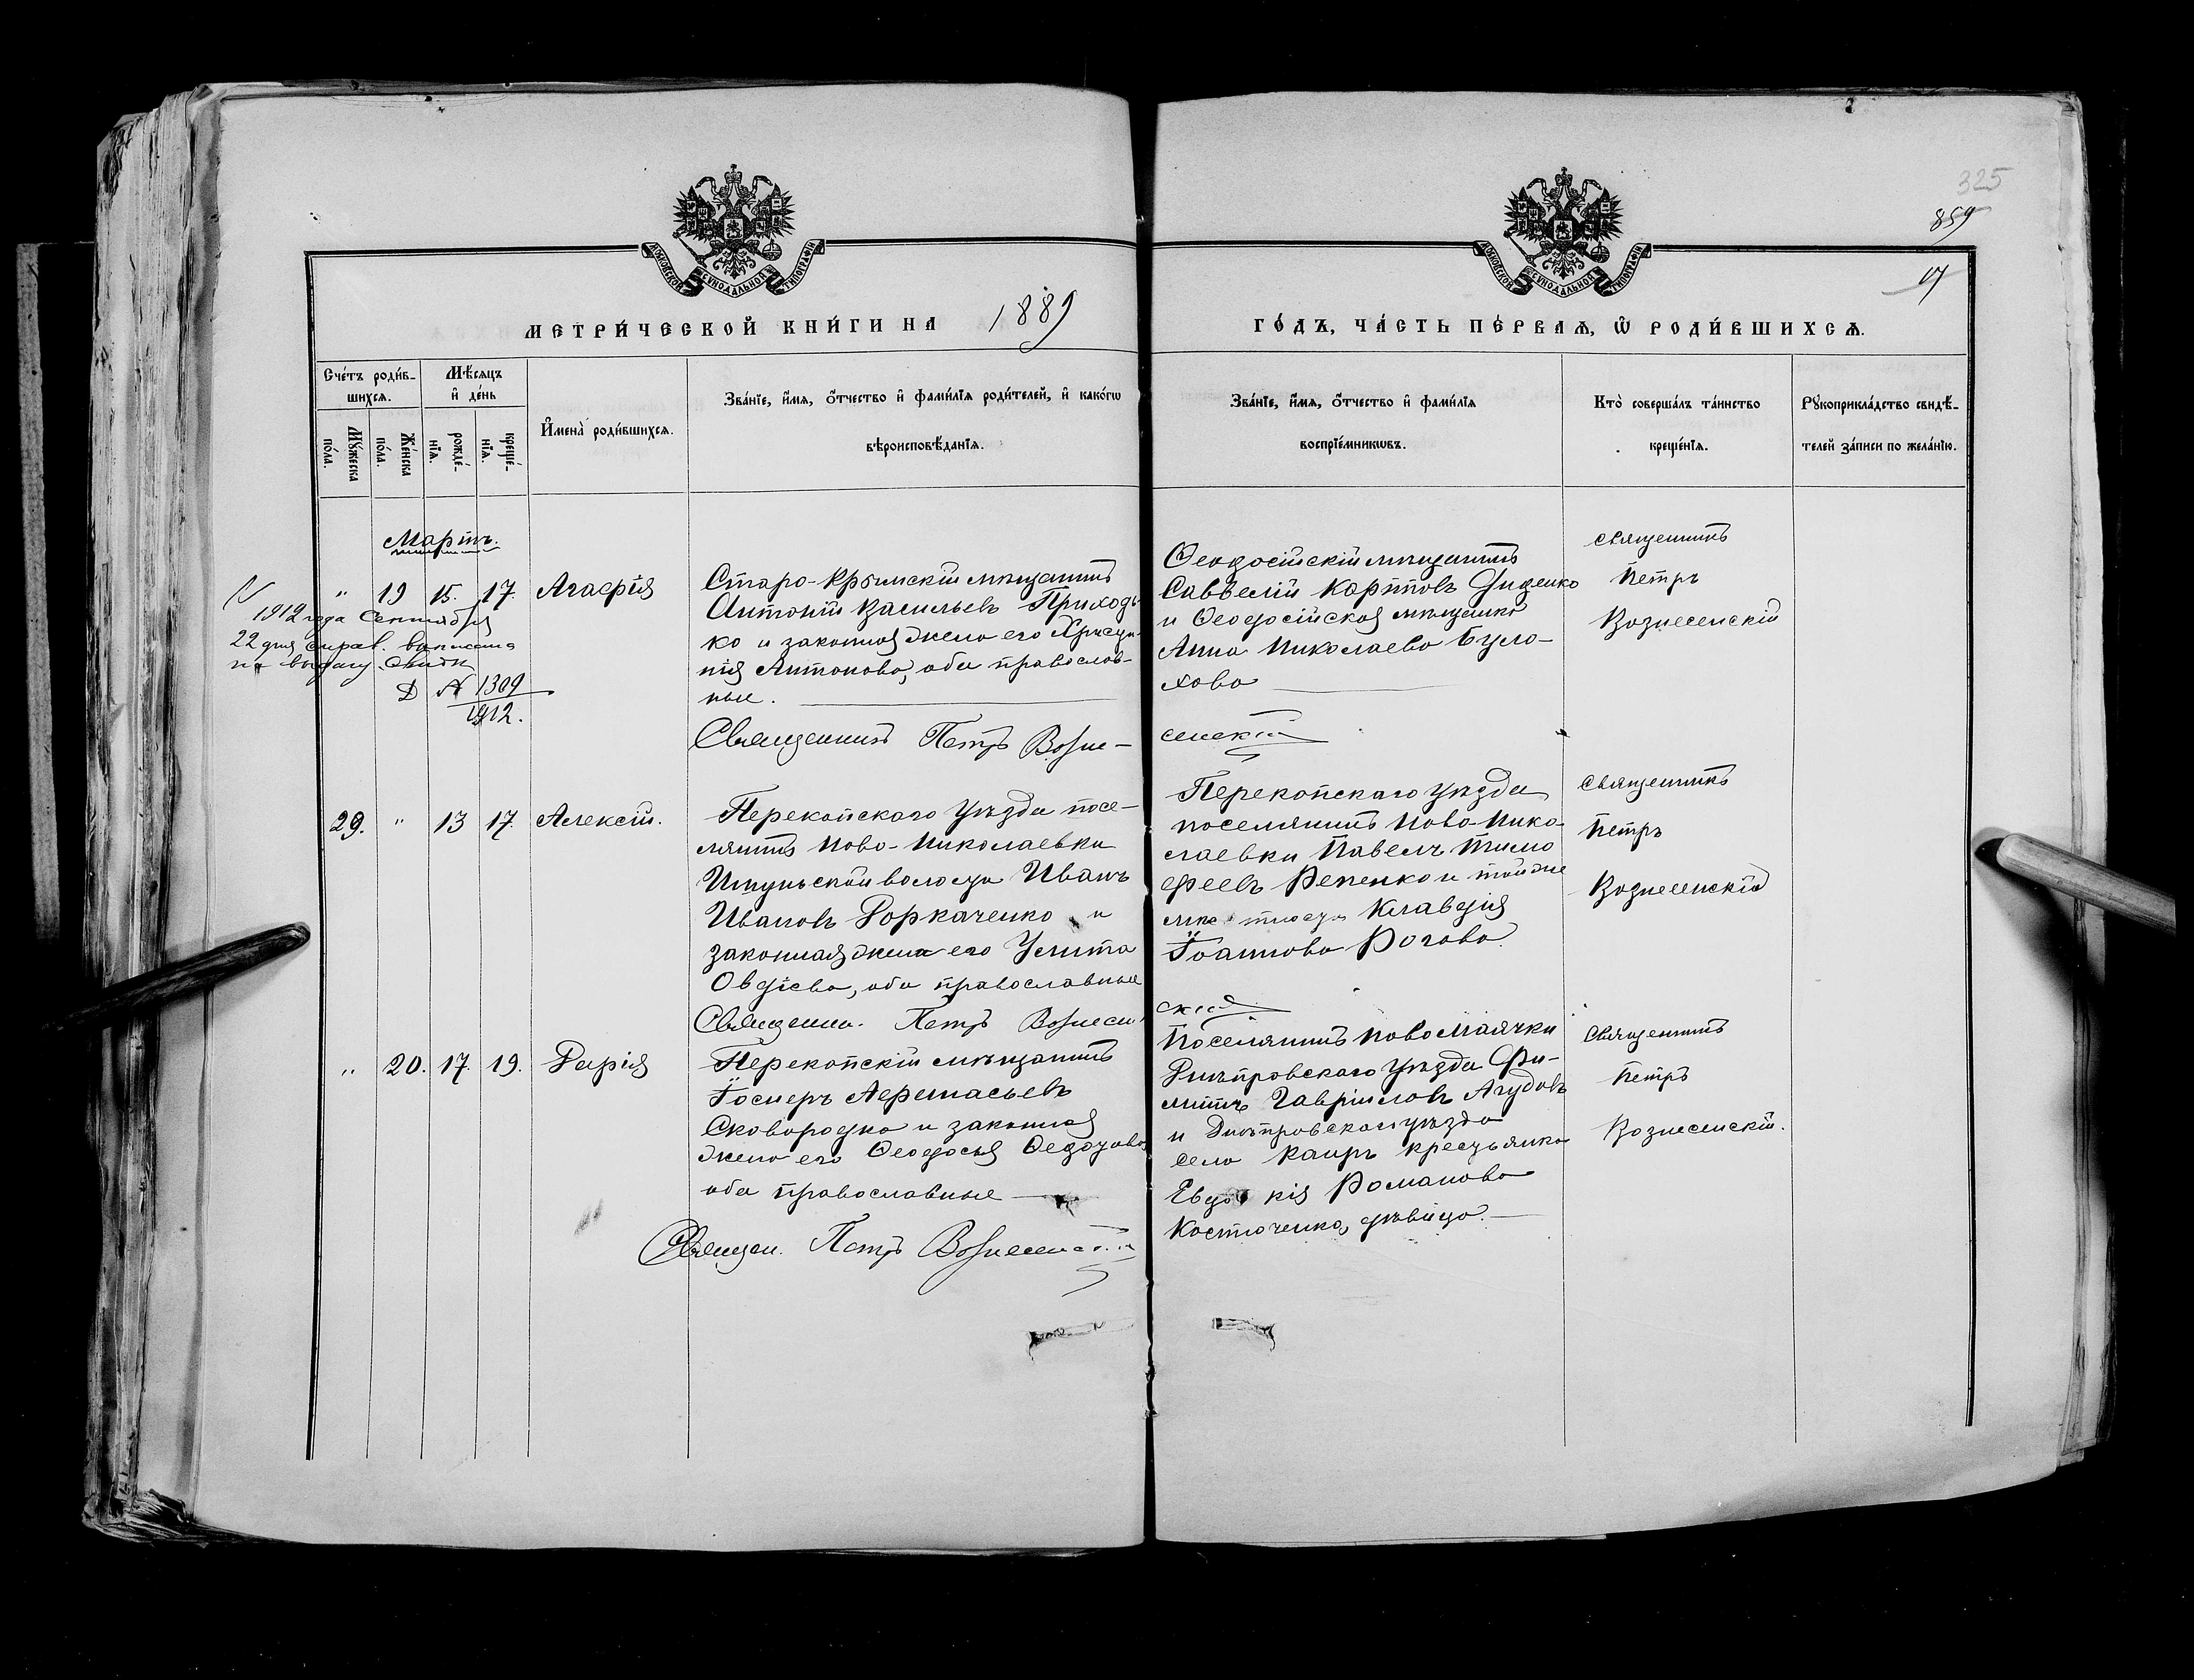 325
859
17
МОСКОВСКОЙ СѴНОДАЛЬНОЙ ТИПОГРАФІИ
МОСКОВСКОЙ СѴНОДАЛЬНОЙ ТИПОГРАФІИ
МЕТРИ́ЧЕСКОЙ КНИ́ГИ НА 1889
ГО́ДЪ, ЧА́СТЬ ПЕ́РВАѦ, Ѿ РОДИ́ВШИХСѦ.
Сче́тъ роди́в-
шихсѧ.
Мꙋ́жеска
по́ла.
Же́нска
по́ла.
Мѣ́сѧцъ
и҆ де́нь
рожде́-
нїѧ.
креще́-
нїѧ.
И҆мена̀ роди́вшихсѧ.
Зва́нїе, и҆́мѧ, ѻ҆́тчество и҆ фами́лїѧ роди́телей, и҆ како́гѡ
вѣроисповѣ́данїѧ.
Зва́нїе, и҆́мѧ, ѻ҆́тчество и҆ фами́лїѧ
воспрїе́мникѡвъ.
Кто̀ соверша́лъ та́инство
креще́нїѧ.
Рꙋкоприкла́дство свидѣ́-
телей за́писи по жела́нїю.
Мартъ.
" 19 15. 17. Агафія
1912 года Сентября
22 дня справ.
на выдачу
№ 1309
1912.
Старо-Крымскій мѣщанинъ
Антоній Васильевъ Приходь-
ко и законная жена его
Антонова, оба православ-
ные.
Священникъ Петръ Возне-
сенскій
Ѳеодосійскій мѣщанинъ
Савелій Карповъ Диденко
и Ѳеодосійская мѣщанка
Анна Николаева Була-
хова
Священникъ
Петръ
Вознесенскій
29. " 13 17. Алексій.
Перекопскаго уѣзда посе-
лянинъ Ново-Николаевки
волости Иванъ
Ивановъ Доркаченко и
законная жена его Улита
Овдіева, оба православные
Священни. Петръ Вознесен
скій
Перекопскаго уѣзда
поселянинъ Ново-Нико-
лаевки Павелъ Тимо
феевъ Репенко и той же
Клавдія
Іоаннова Рогова.
Священникъ
Петръ
Вознесенскій
" 20. 17. 19. Дарія
Перекопскій мѣщанинъ
Сковородка и законная
жена его Ѳеодосья Ѳедорова
оба православные
Священ. Петръ Вознесенскій
Поселянинъ Ново Маячки
Днѣпровскаго уѣзда Фи-
липпъ Гавриловъ
и Днѣпровскаго уѣзда
села Каиръ крестьянка
Евдокія Романова
Костюченко, дѣвица.
Священникъ
Петръ
Вознесенскій.